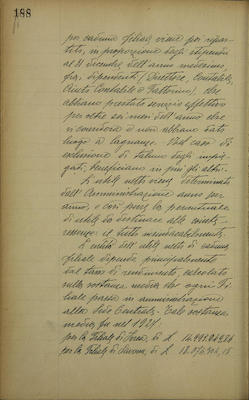 188
per ciascuna filiale, viene poi repar-
tito, in proporzione degli stipendi
al 31 dicembre dell'anno medesimo
fra i dipendenti, (Direttore, Contabile,
Aiuto Contabile e Fattorino) che
abbiano prestato servizio effettivo
per oltre sei mesi dell'anno che
si considera e non abbiano dato
luogo a lagnanze. Nel caso di
esclusione di taluno degli impie-
gati, beneficiano in più gli altri.
L'utile netto viene determinato
dall'Amministrazione anno per
anno, e così pure la percentuale
di utile da destinare alla cointe-
ressenza: il tutto insindacabilmente.
L'entità dell'utile netto di ciascuna
filiale dipende principalmente
dal tasso di rendimento, calcolato
sulla sostanza media che ogni Fi-
liale passa in amministrazione
alla Sede Centrale. Tale sostanza
media fu nel 1927:
per la Filiale di di L.
per la Filiale di di L.